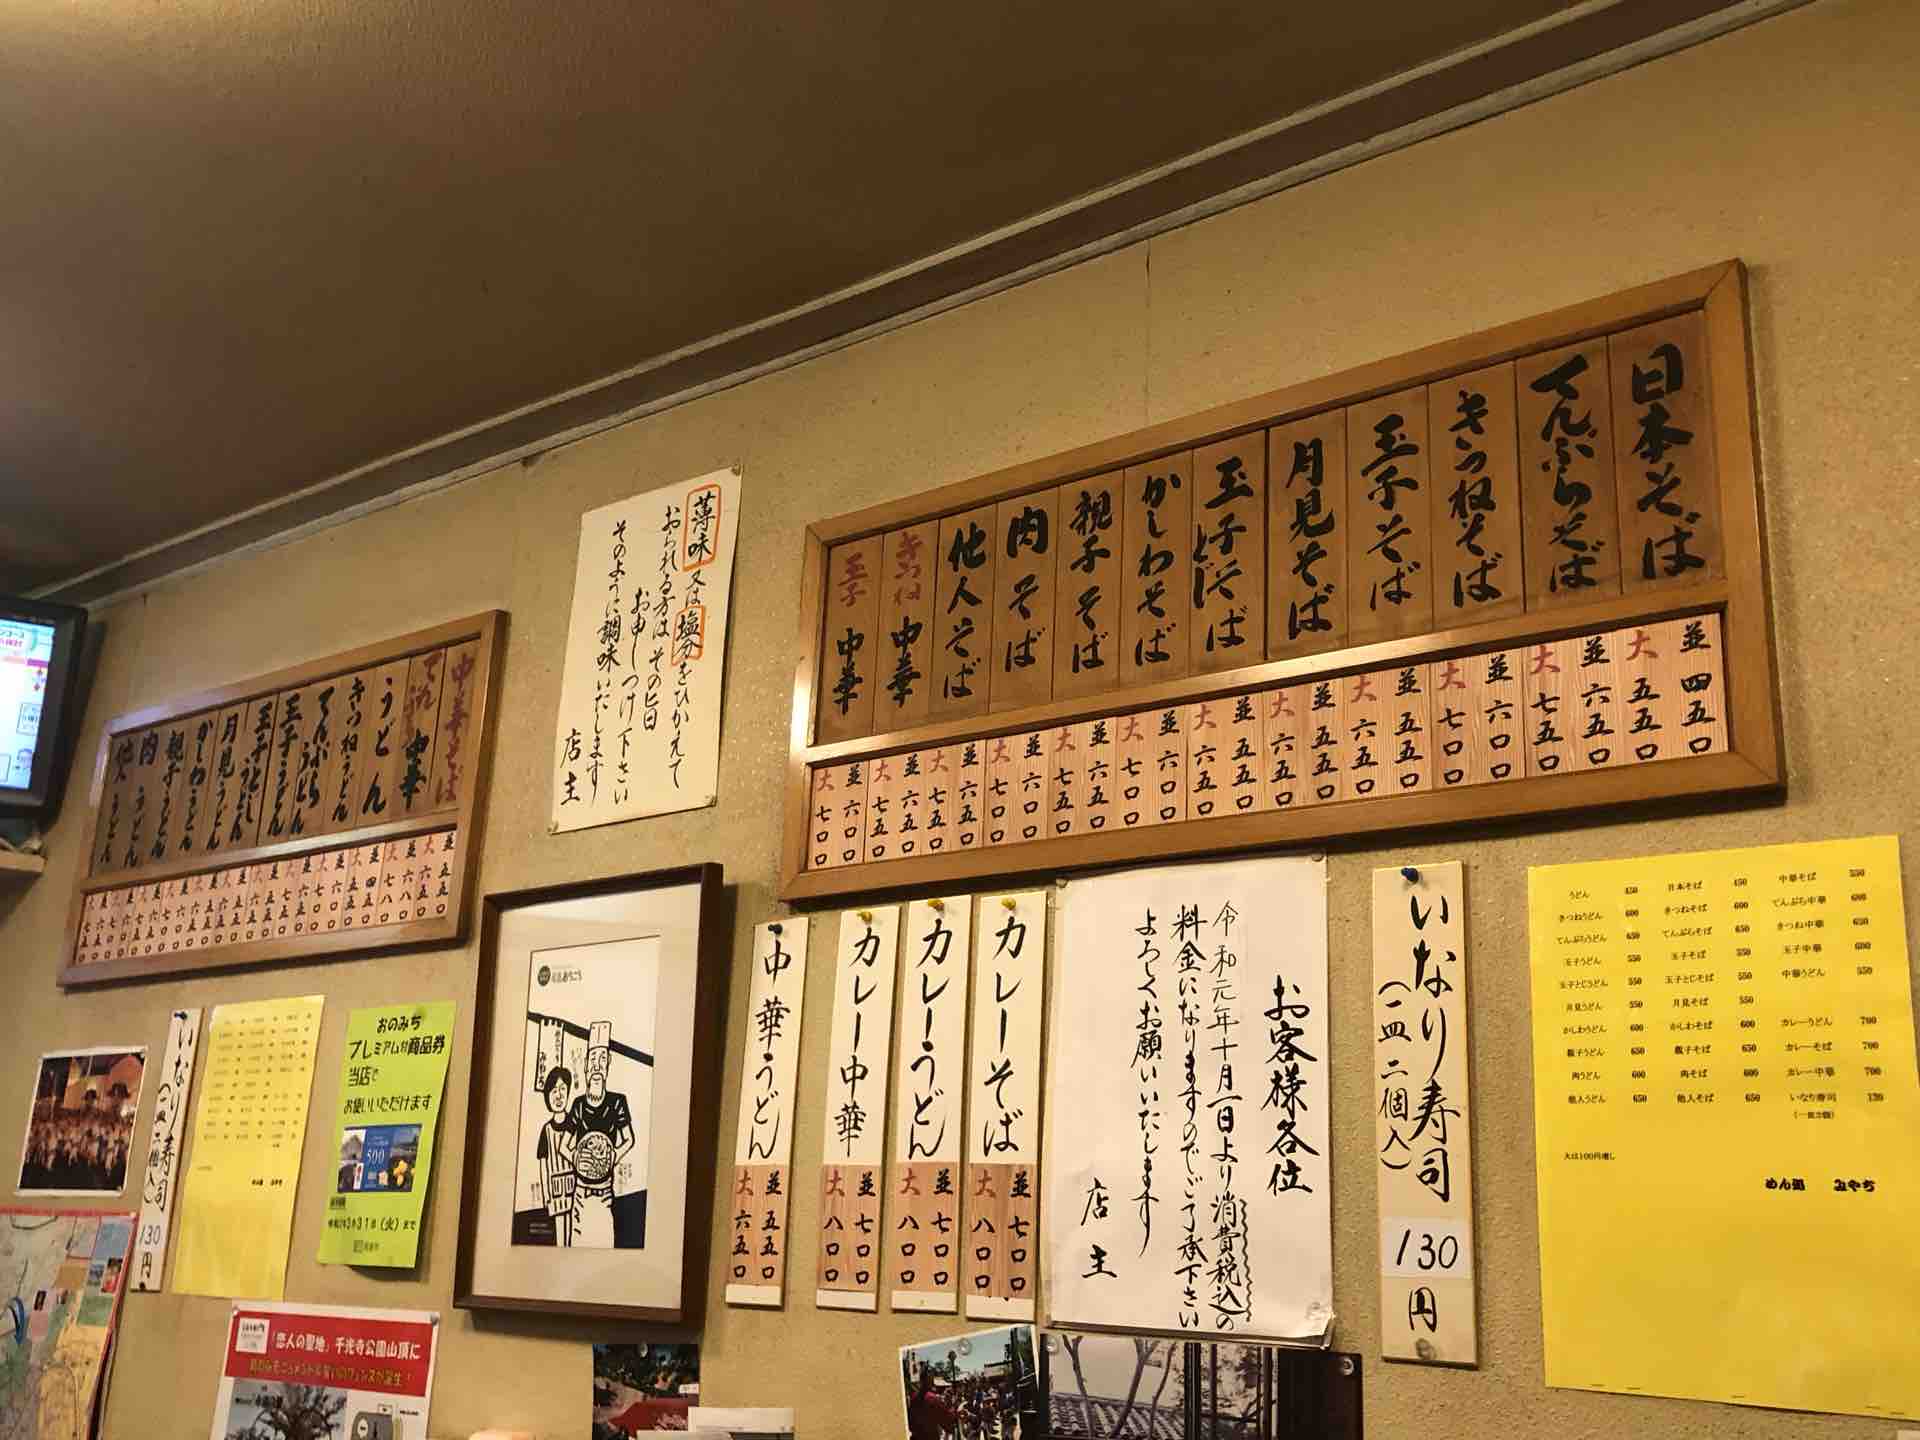 日本そば
並 四五〇
大 五五〇
てんぷらそば
並 六五〇
大 七五〇
きつねそば
並 六〇〇
大 七〇〇
玉子そば
並 五五〇
大 六五〇
月見そば
並 五五〇
大 六五〇
玉子とじそば
並 五五〇
大 六五〇
かしわそば
並 六〇〇
大 七〇〇
親子そば
並 六五〇
大 七五〇
肉そば
並 六〇〇
大 七〇〇
他人そば
並 六五〇
大 七五〇
きつね中華
並 六五〇
大 七五〇
玉子中華
並 六〇〇
大 七〇〇
薄味又は塩分をひかえて
おられる方はその旨
お申しつけ下さい
そのように調味いたします
店主
中華そば
並 五五〇
大 六五〇
てんぷら中華
並 六八〇
大 七八〇
うどん
並 四五〇
大 五五〇
きつねうどん
てんぷらうどん
玉子うどん
玉子とじうどん
月見うどん
かしわうどん
親子うどん
肉うどん
他人うどん
うどん 450 日本そば 450 中華そば 550
きつねうどん 600 きつねそば 600 てんぷら中華 680
てんぷらうどん 650 てんぷらそば 650 きつね中華 650
玉子うどん 550 玉子そば 550 玉子中華 600
玉子とじうどん 550 玉子とじそば 550 中華うどん 550
月見うどん 550 月見そば 550
かしわうどん 600 かしわそば 600 カレーうどん 700
親子うどん 650 親子そば 650 カレーそば 700
肉うどん 600 肉そば 600 カレー中華 700
他人うどん 650 他人そば 650 いなり寿司 130
(一皿二個)
大は100円増し
めん処 みやち
いなり寿司
(一皿二個入)
130円
お客様各位
令和元年十月一日より消費税込の
料金になりますのでご了承下さい
よろしくお願いいたします
店主
カレーそば
並 七〇〇
大 八〇〇
カレーうどん
並 七〇〇
大 八〇〇
カレー中華
並 七〇〇
大 八〇〇
中華うどん
並 五五〇
大 六五〇
おのみち
プレミアム付商品券
当店で
お使いいただけます
500
3月31日(火)まで
いなり寿司
(一皿二個入)
130円
「恋人の聖地」千光寺公園山頂に